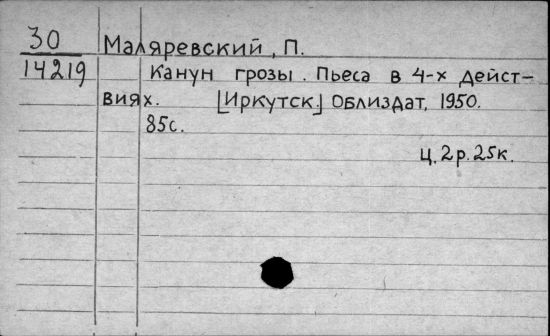 30 Маляревский, П.
14219 Канун грозы. Пьеса в 4-х дейст-
виях. [Иркутск.] Облиздат, 1950.
85с.
Ц. 2р. 25к.